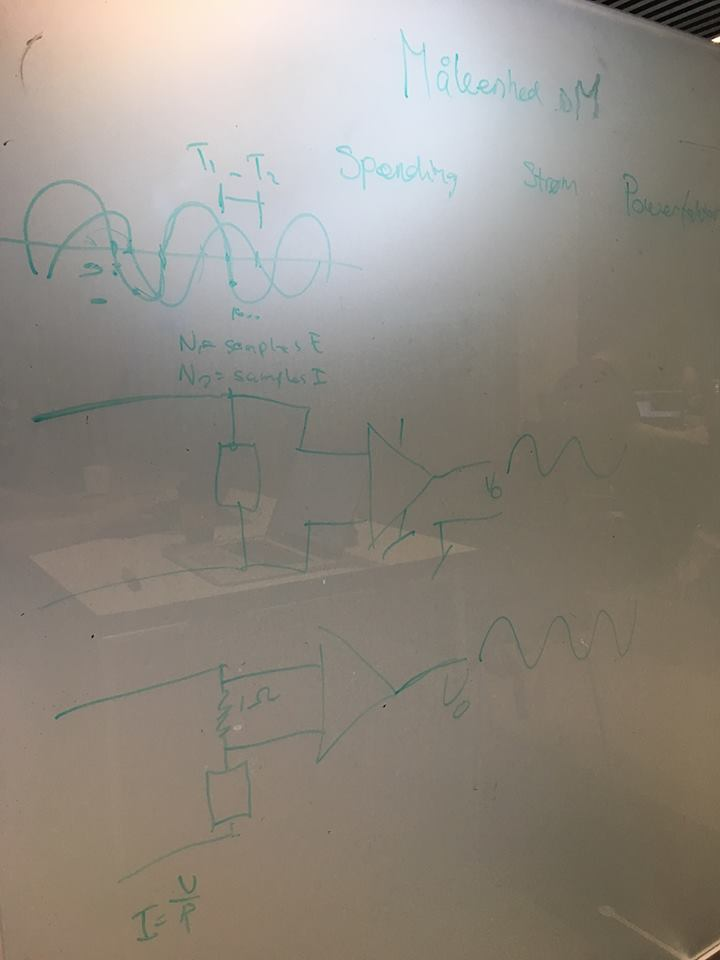 Måleenhed DM
Spænding Strøm Powerfaktor
T₁ - T₂
N₁= samples E
N₂= samples I
U₀
1Ω
U₀
I = U/R